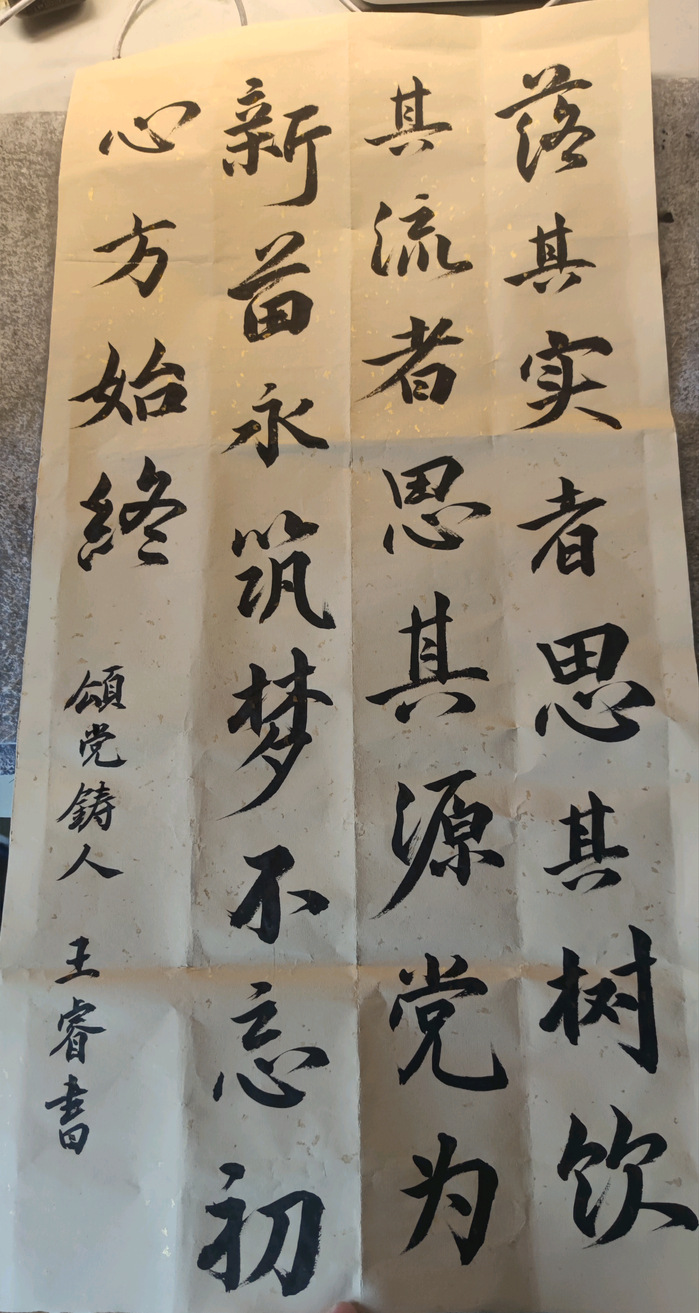 落其实者思其树饮
其流者思其源党为
新苗永筑梦不忘初
心方始终
頌党鋳人 王睿書